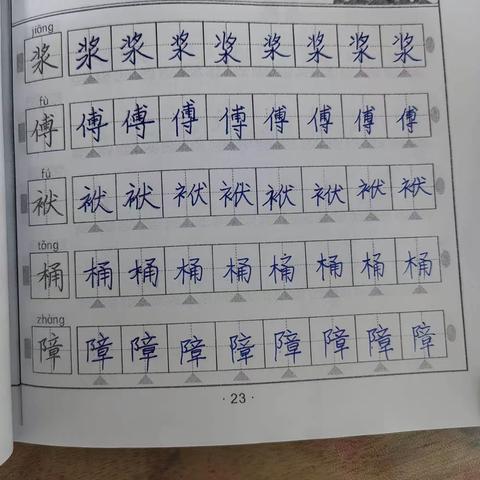 jiāng
浆 浆 浆 浆 浆 浆 浆 浆 浆
fù
傅 傅 傅 傅 傅 傅 傅 傅 傅
fú
袱 袱 袱 袱 袱 袱 袱 袱 袱
tǒng
桶 桶 桶 桶 桶 桶 桶 桶 桶
zhàng
障 障 障 障 障 障 障 障 障
· 23 ·